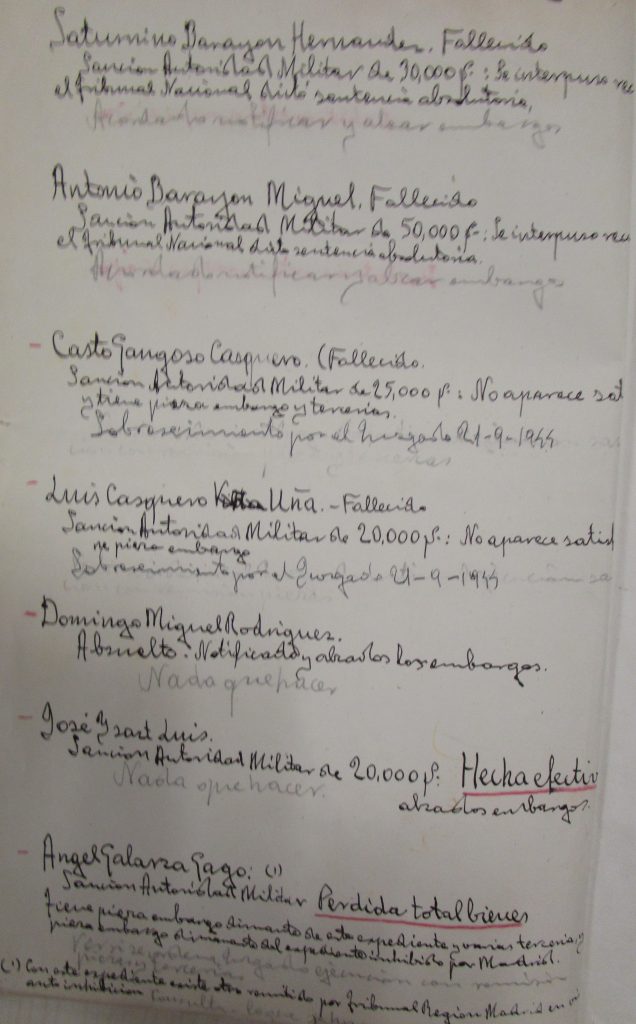 Saturnino Barayon Hernandez. Fallecido
Sancion Autoridad Militar de 30,000 p: Se interpuso rec
el Tribunal Nacional dictó sentencia absolutoria,
Acordado notificar y alzar embargos
Antonio Barayon Miguel. Fallecido
Sancion Autoridad Militar de 50,000 p: Se interpuso rec
el Tribunal Nacional dicto sentencia absolutoria.
Acordado notificar y alzar embargos
- Casto Gangoso Casquero. (Fallecido.
Sancion Autoridad Militar de 25,000 p: No aparece sat
y tiene pieza embargo y tercerias.
Sobreseimiento por el Juzgado 21-9-1944
- Luis Casquero Uña. - Fallecido
Sancion Autoridad Militar de 20,000 p: No aparece satisf
pieza embargo
Sobreseimiento por el Juzgado 21-9-1944
- Domingo Miguel Rodriguez.
Absuelto: Notificado y alzados los embargos.
Nada que hacer
- José Ysart Luis.
Sancion Autoridad Militar de 20,000 p. Hecha efectiv
alzados embargos.
Nada que hacer.
- Angel Galarza Gago: (1)
Sancion Autoridad Militar Perdida total bienes
Tiene pieza embargo dimanante de este expediente y varias tercerias;
pieza embargo dimanante del expediente inhibido por Madrid.
(1) Con este expediente existe otro remitido por Tribunal Region Madrid en
inhibicion